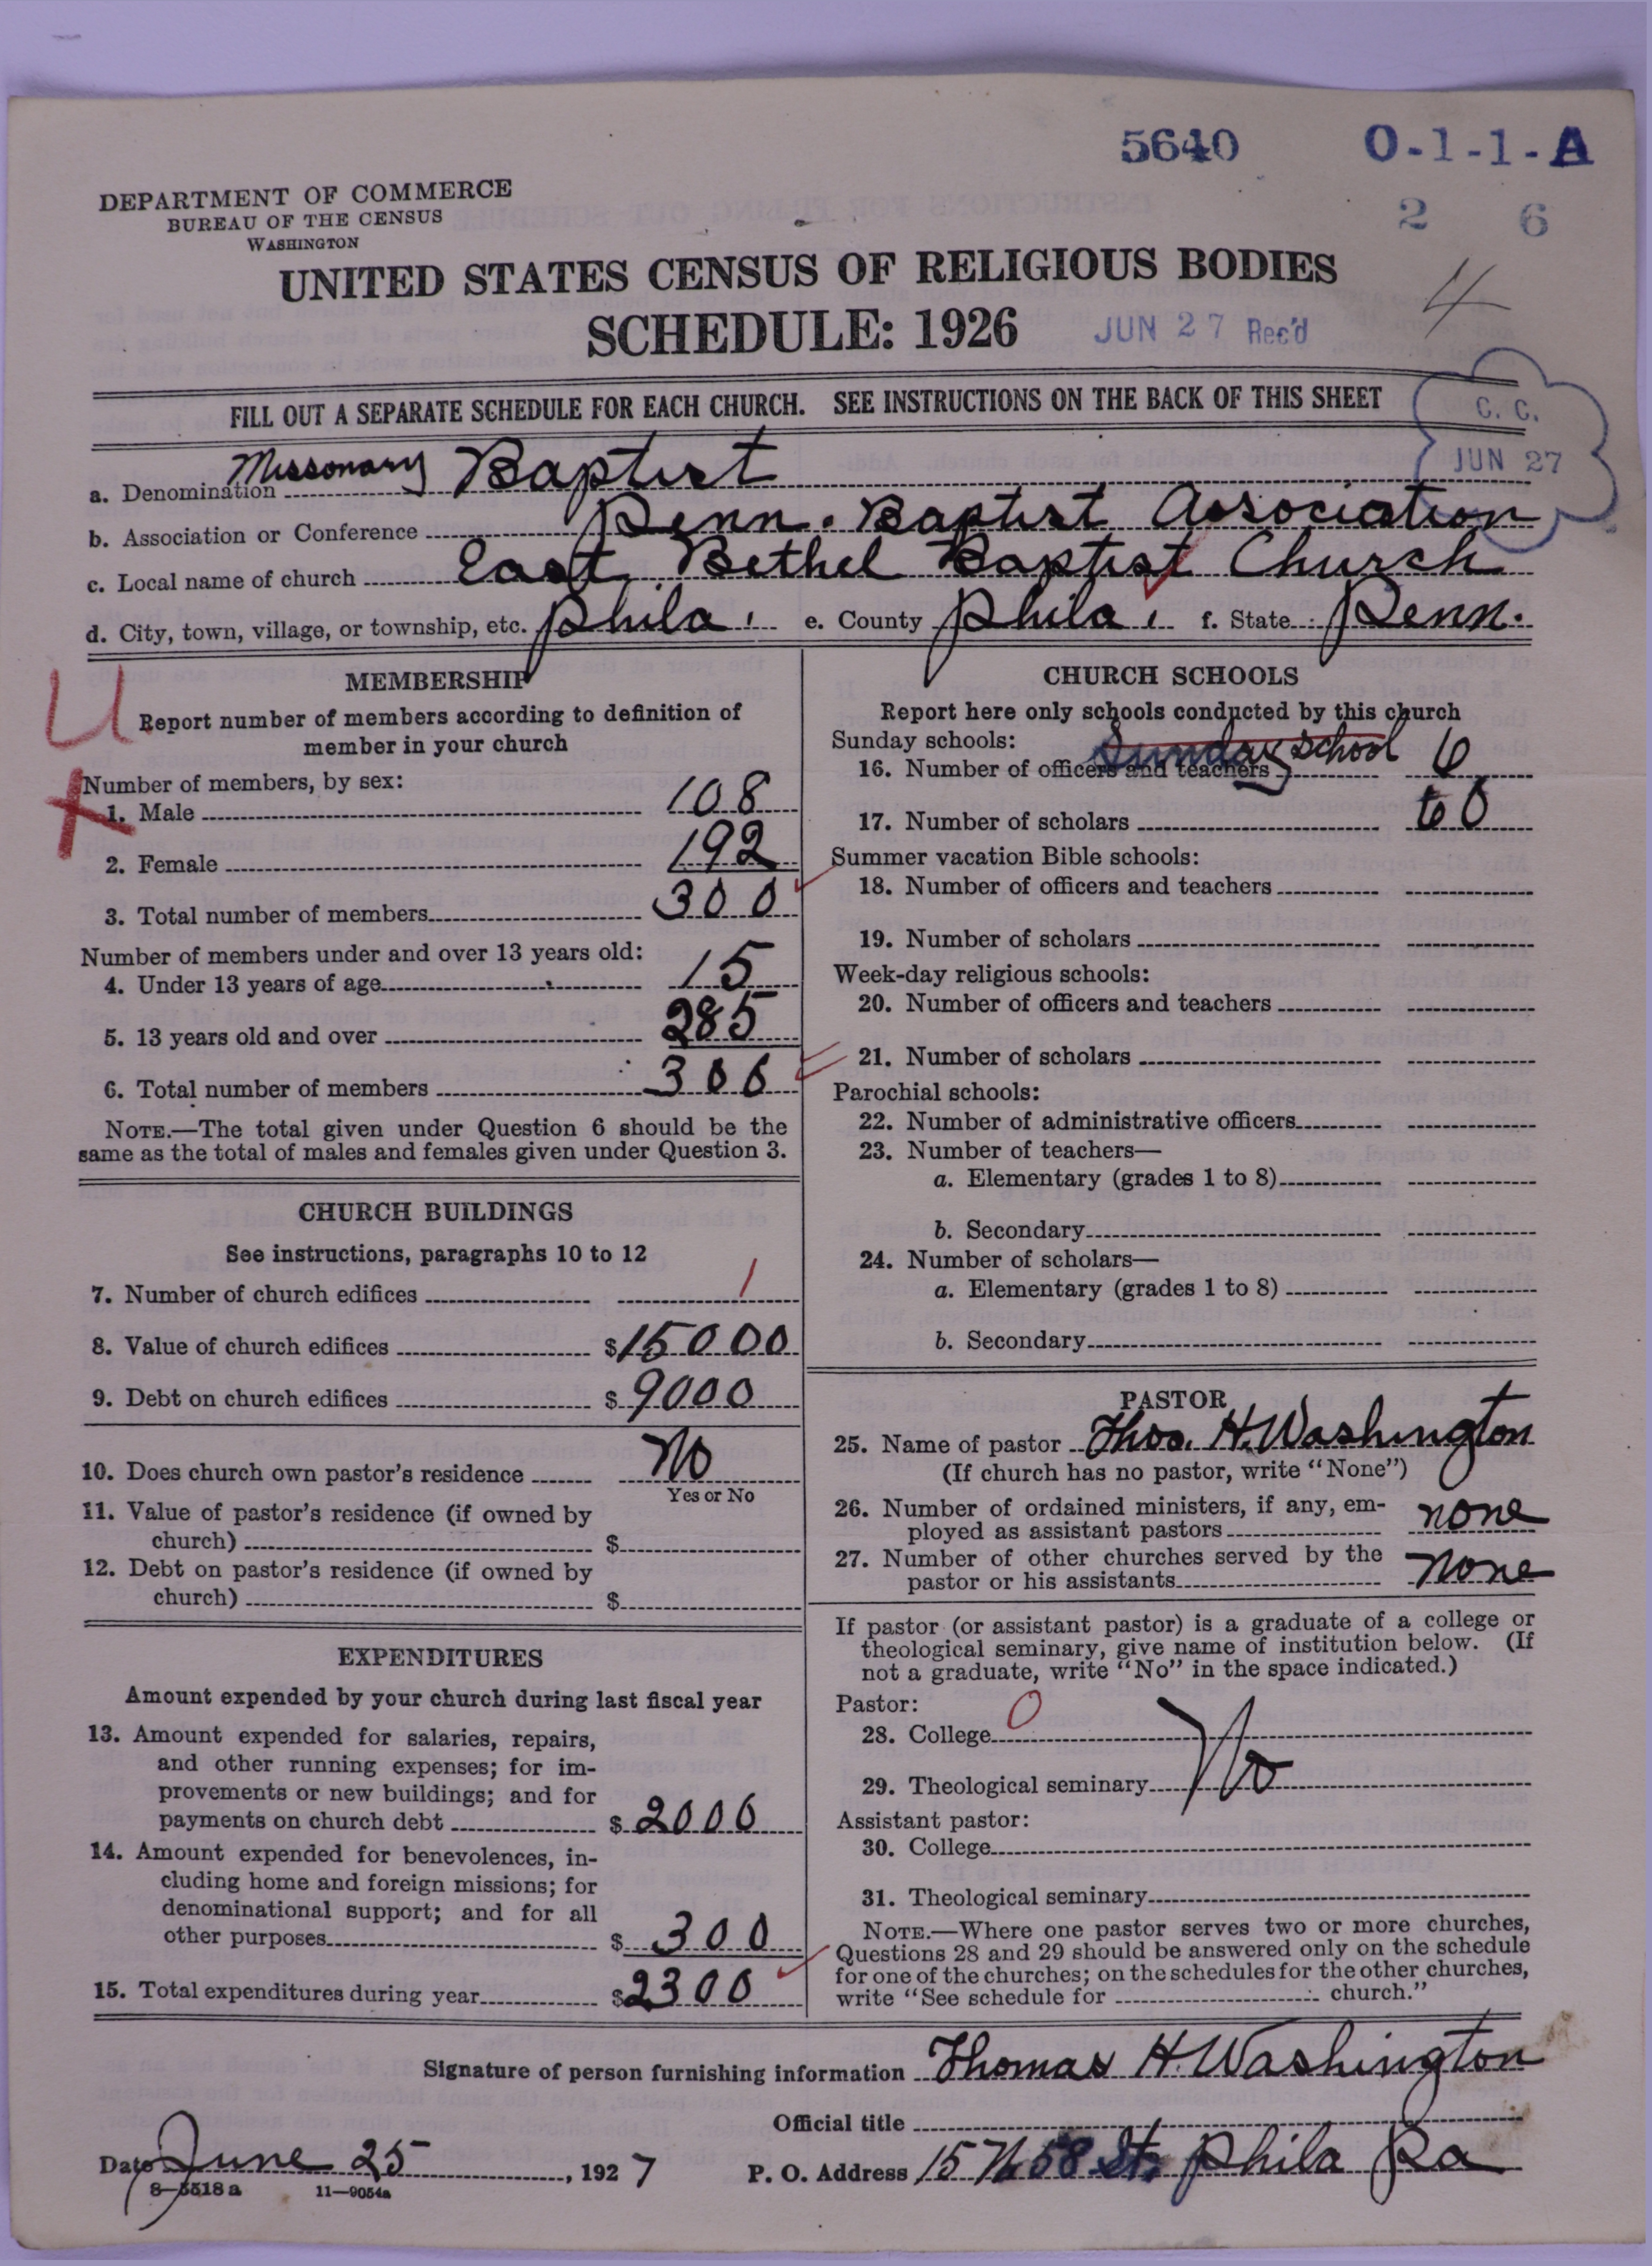 5640 0-1-1-A
2 6
DEPARTMENT OF COMMERCE
BUREAU OF THE CENSUS
WASHINGTON
UNITED STATES CENSUS OF RELIGIOUS BODIES
SCHEDULE: 1926 JUN 27 Rec'd
4
FILL OUT A SEPARATE SCHEDULE FOR EACH CHURCH. SEE INSTRUCTIONS ON THE BACK OF THIS SHEET
C. C.
JUN 27
a. Denomination Missonary Baptist
b. Association or Conference Penn. Baptist Association
c. Local name of church East Bethel Baptist Church
d. City, town, village, or township, etc. Phila. e. County Phila. f. State Penn.
U
X
MEMBERSHIP
Report number of members according to definition of
member in your church
Number of members, by sex:
1. Male 108
2. Female 192
3. Total number of members 300
Number of members under and over 13 years old:
4. Under 13 years of age 15
5. 13 years old and over 285
6. Total number of members 300
NOTE.—The total given under Question 6 should be the
same as the total of males and females given under Question 3.
CHURCH BUILDINGS
See instructions, paragraphs 10 to 12
7. Number of church edifices 1
8. Value of church edifices $15000
9. Debt on church edifices $9000
10. Does church own pastor's residence No
Yes or No
11. Value of pastor's residence (if owned by
church) $
12. Debt on pastor's residence (if owned by
church) $
EXPENDITURES
Amount expended by your church during last fiscal year
13. Amount expended for salaries, repairs,
and other running expenses; for im-
provements or new buildings; and for
payments on church debt $2000
14. Amount expended for benevolences, in-
cluding home and foreign missions; for
denominational support; and for all
other purposes $300
15. Total expenditures during year $2300
CHURCH SCHOOLS
Report here only schools conducted by this church
Sunday schools: Sunday School
16. Number of officers and teachers 6
17. Number of scholars 60
Summer vacation Bible schools:
18. Number of officers and teachers
19. Number of scholars
Week-day religious schools:
20. Number of officers and teachers
21. Number of scholars
Parochial schools:
22. Number of administrative officers
23. Number of teachers—
a. Elementary (grades 1 to 8)
b. Secondary
24. Number of scholars—
a. Elementary (grades 1 to 8)
b. Secondary
PASTOR
25. Name of pastor Thos. H. Washington
(If church has no pastor, write "None")
26. Number of ordained ministers, if any, em-
ployed as assistant pastors none
27. Number of other churches served by the
pastor or his assistants none
If pastor (or assistant pastor) is a graduate of a college or
theological seminary, give name of institution below. (If
not a graduate, write "No" in the space indicated.)
Pastor:
28. College 0
29. Theological seminary No
Assistant pastor:
30. College
31. Theological seminary
NOTE.—Where one pastor serves two or more churches,
Questions 28 and 29 should be answered only on the schedule
for one of the churches; on the schedules for the other churches,
write "See schedule for church."
Signature of person furnishing information Thomas H. Washington
Official title
Date June 25, 1927 P. O. Address 15 N 58 St. Phila Pa
8-5518a 11-9054a